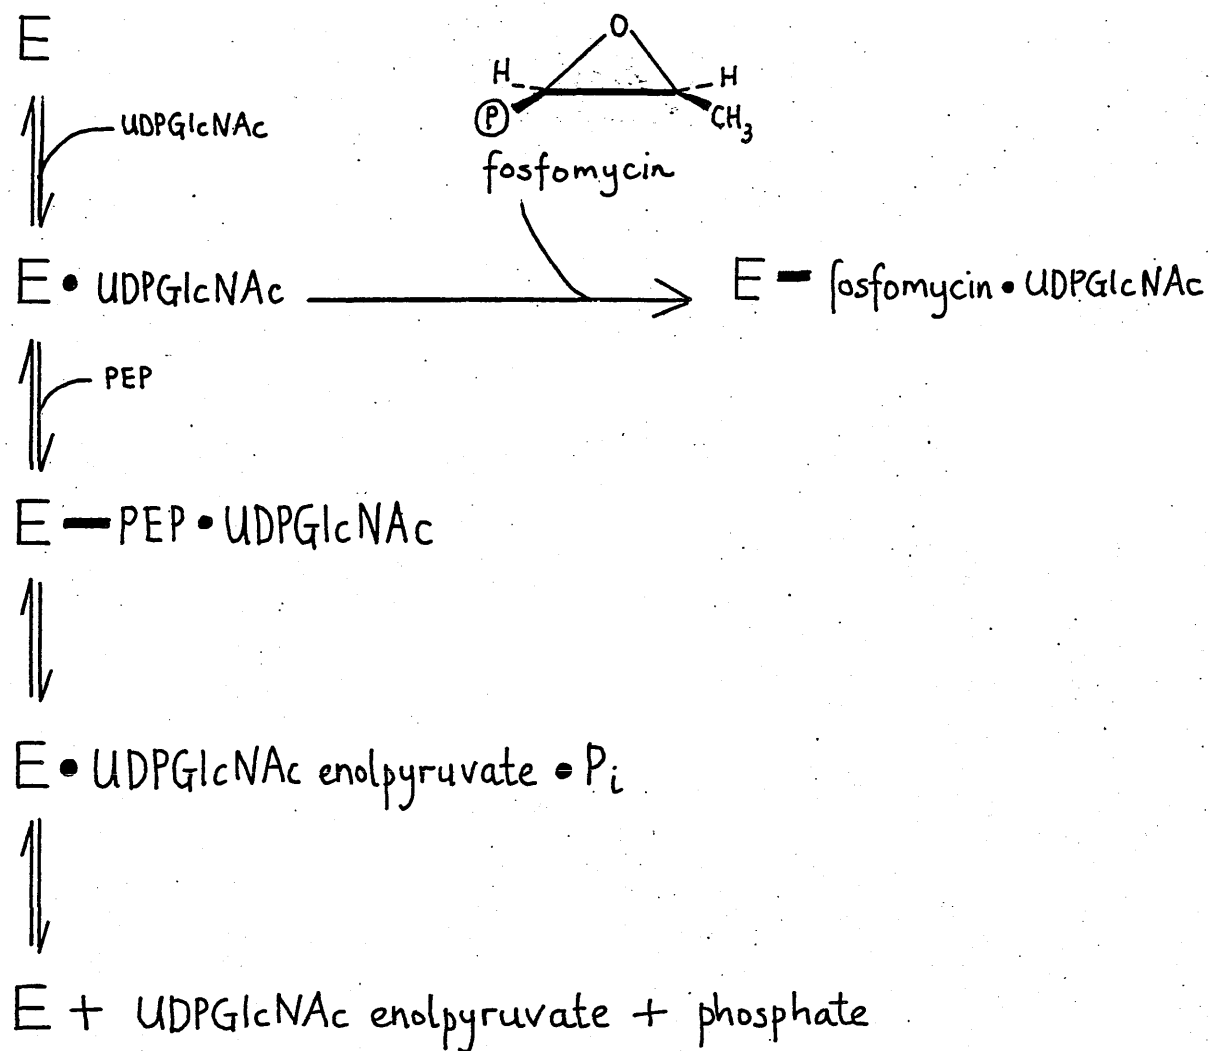 E
O
H
H
P
CH3
UDPGlcNAc
fosfomycin
E • UDPGlcNAc
E — fosfomycin • UDPGlcNAc
PEP
E — PEP • UDPGlcNAc
E • UDPGlcNAc enolpyruvate • Pi
E + UDPGlcNAc enolpyruvate + phosphate